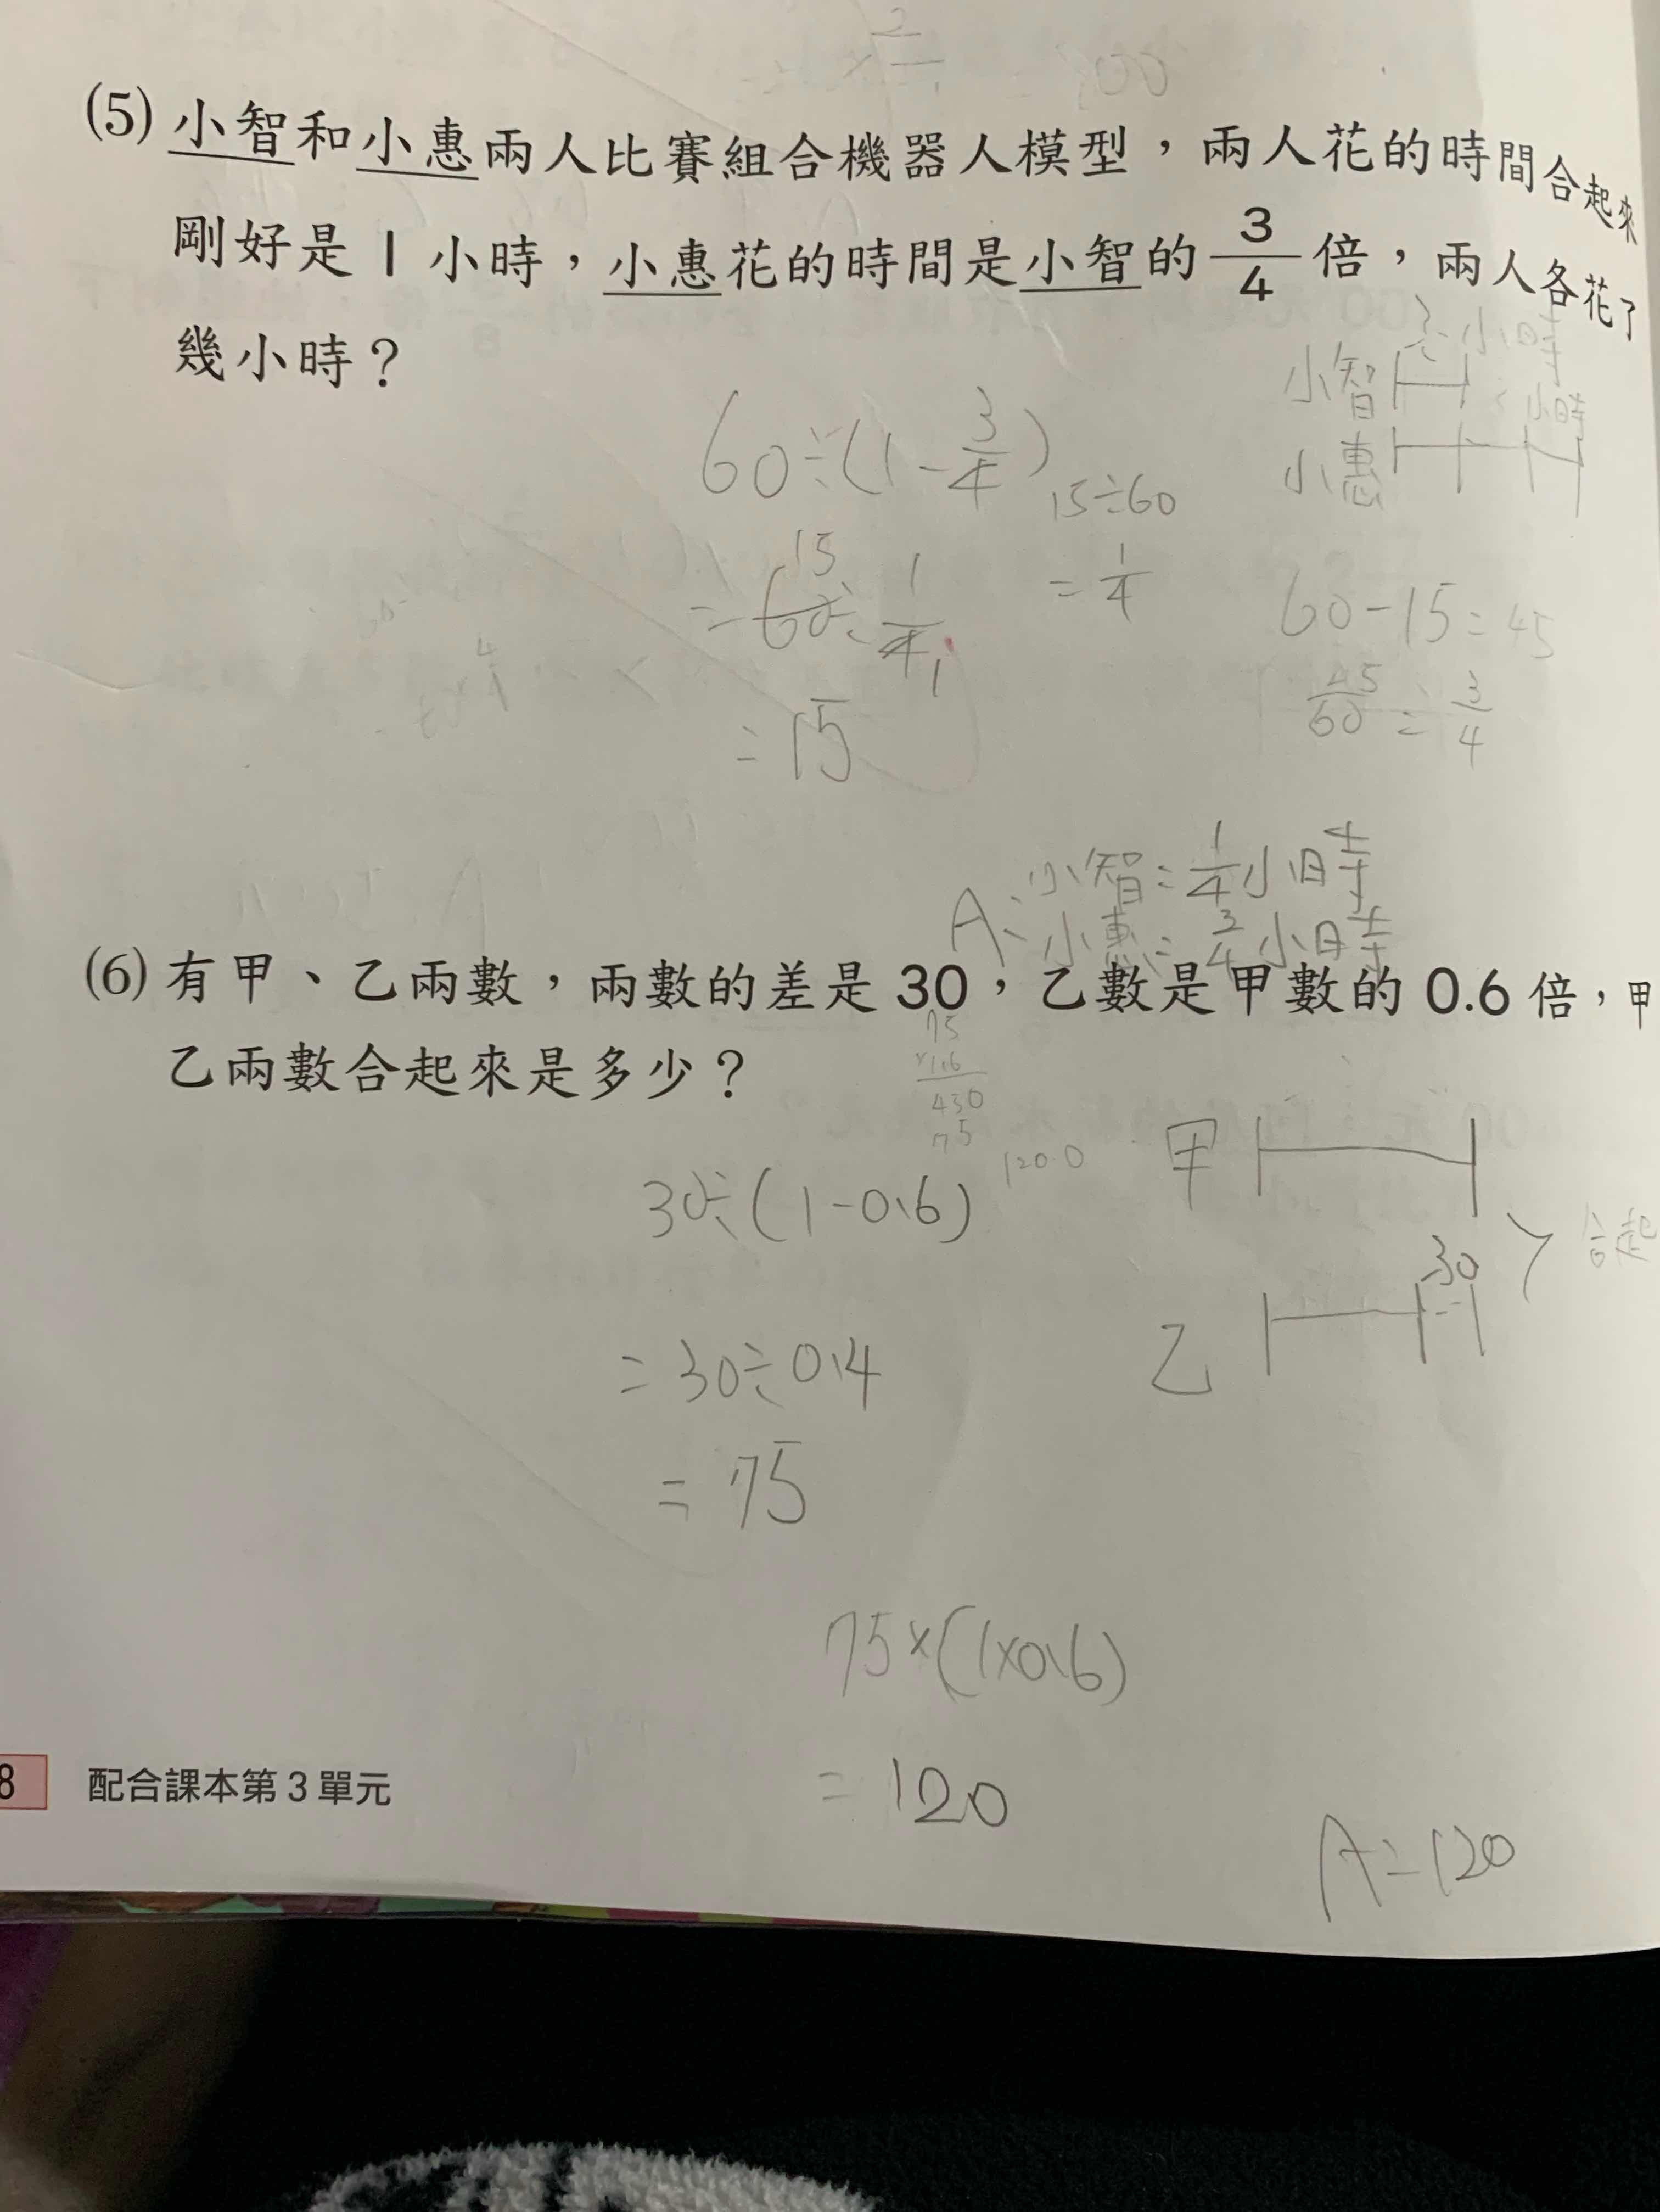 (5) 小智和小惠兩人比賽組合機器人模型，兩人花的時間合起來
剛好是 1 小時，小惠花的時間是小智的 3/4 倍，兩人各花了
幾小時？
小時
小智
小時
小惠
60÷(1-3/4)
15÷60
=1/4
15
=60÷1/4 1
=15
60-15=45
45/60=3/4
A：小智=1/4小時
小惠=3/4小時
(6) 有甲、乙兩數，兩數的差是 30，乙數是甲數的 0.6 倍，甲
乙兩數合起來是多少？
75
×1.6
450
75
1200
30÷(1-0.6)
甲
30
合起
乙
=30÷0.4
=75
75×(1×0.6)
=120
A=120
8 配合課本第 3 單元